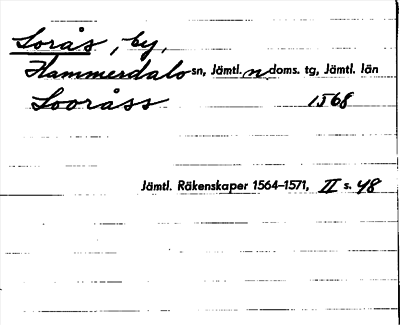 Sorås, by,
Hammerdals sn, Jämtl. n. doms. tg, Jämtl. län
Sooråss 1568
Jämtl. Räkenskaper 1564–1571, II s. 48